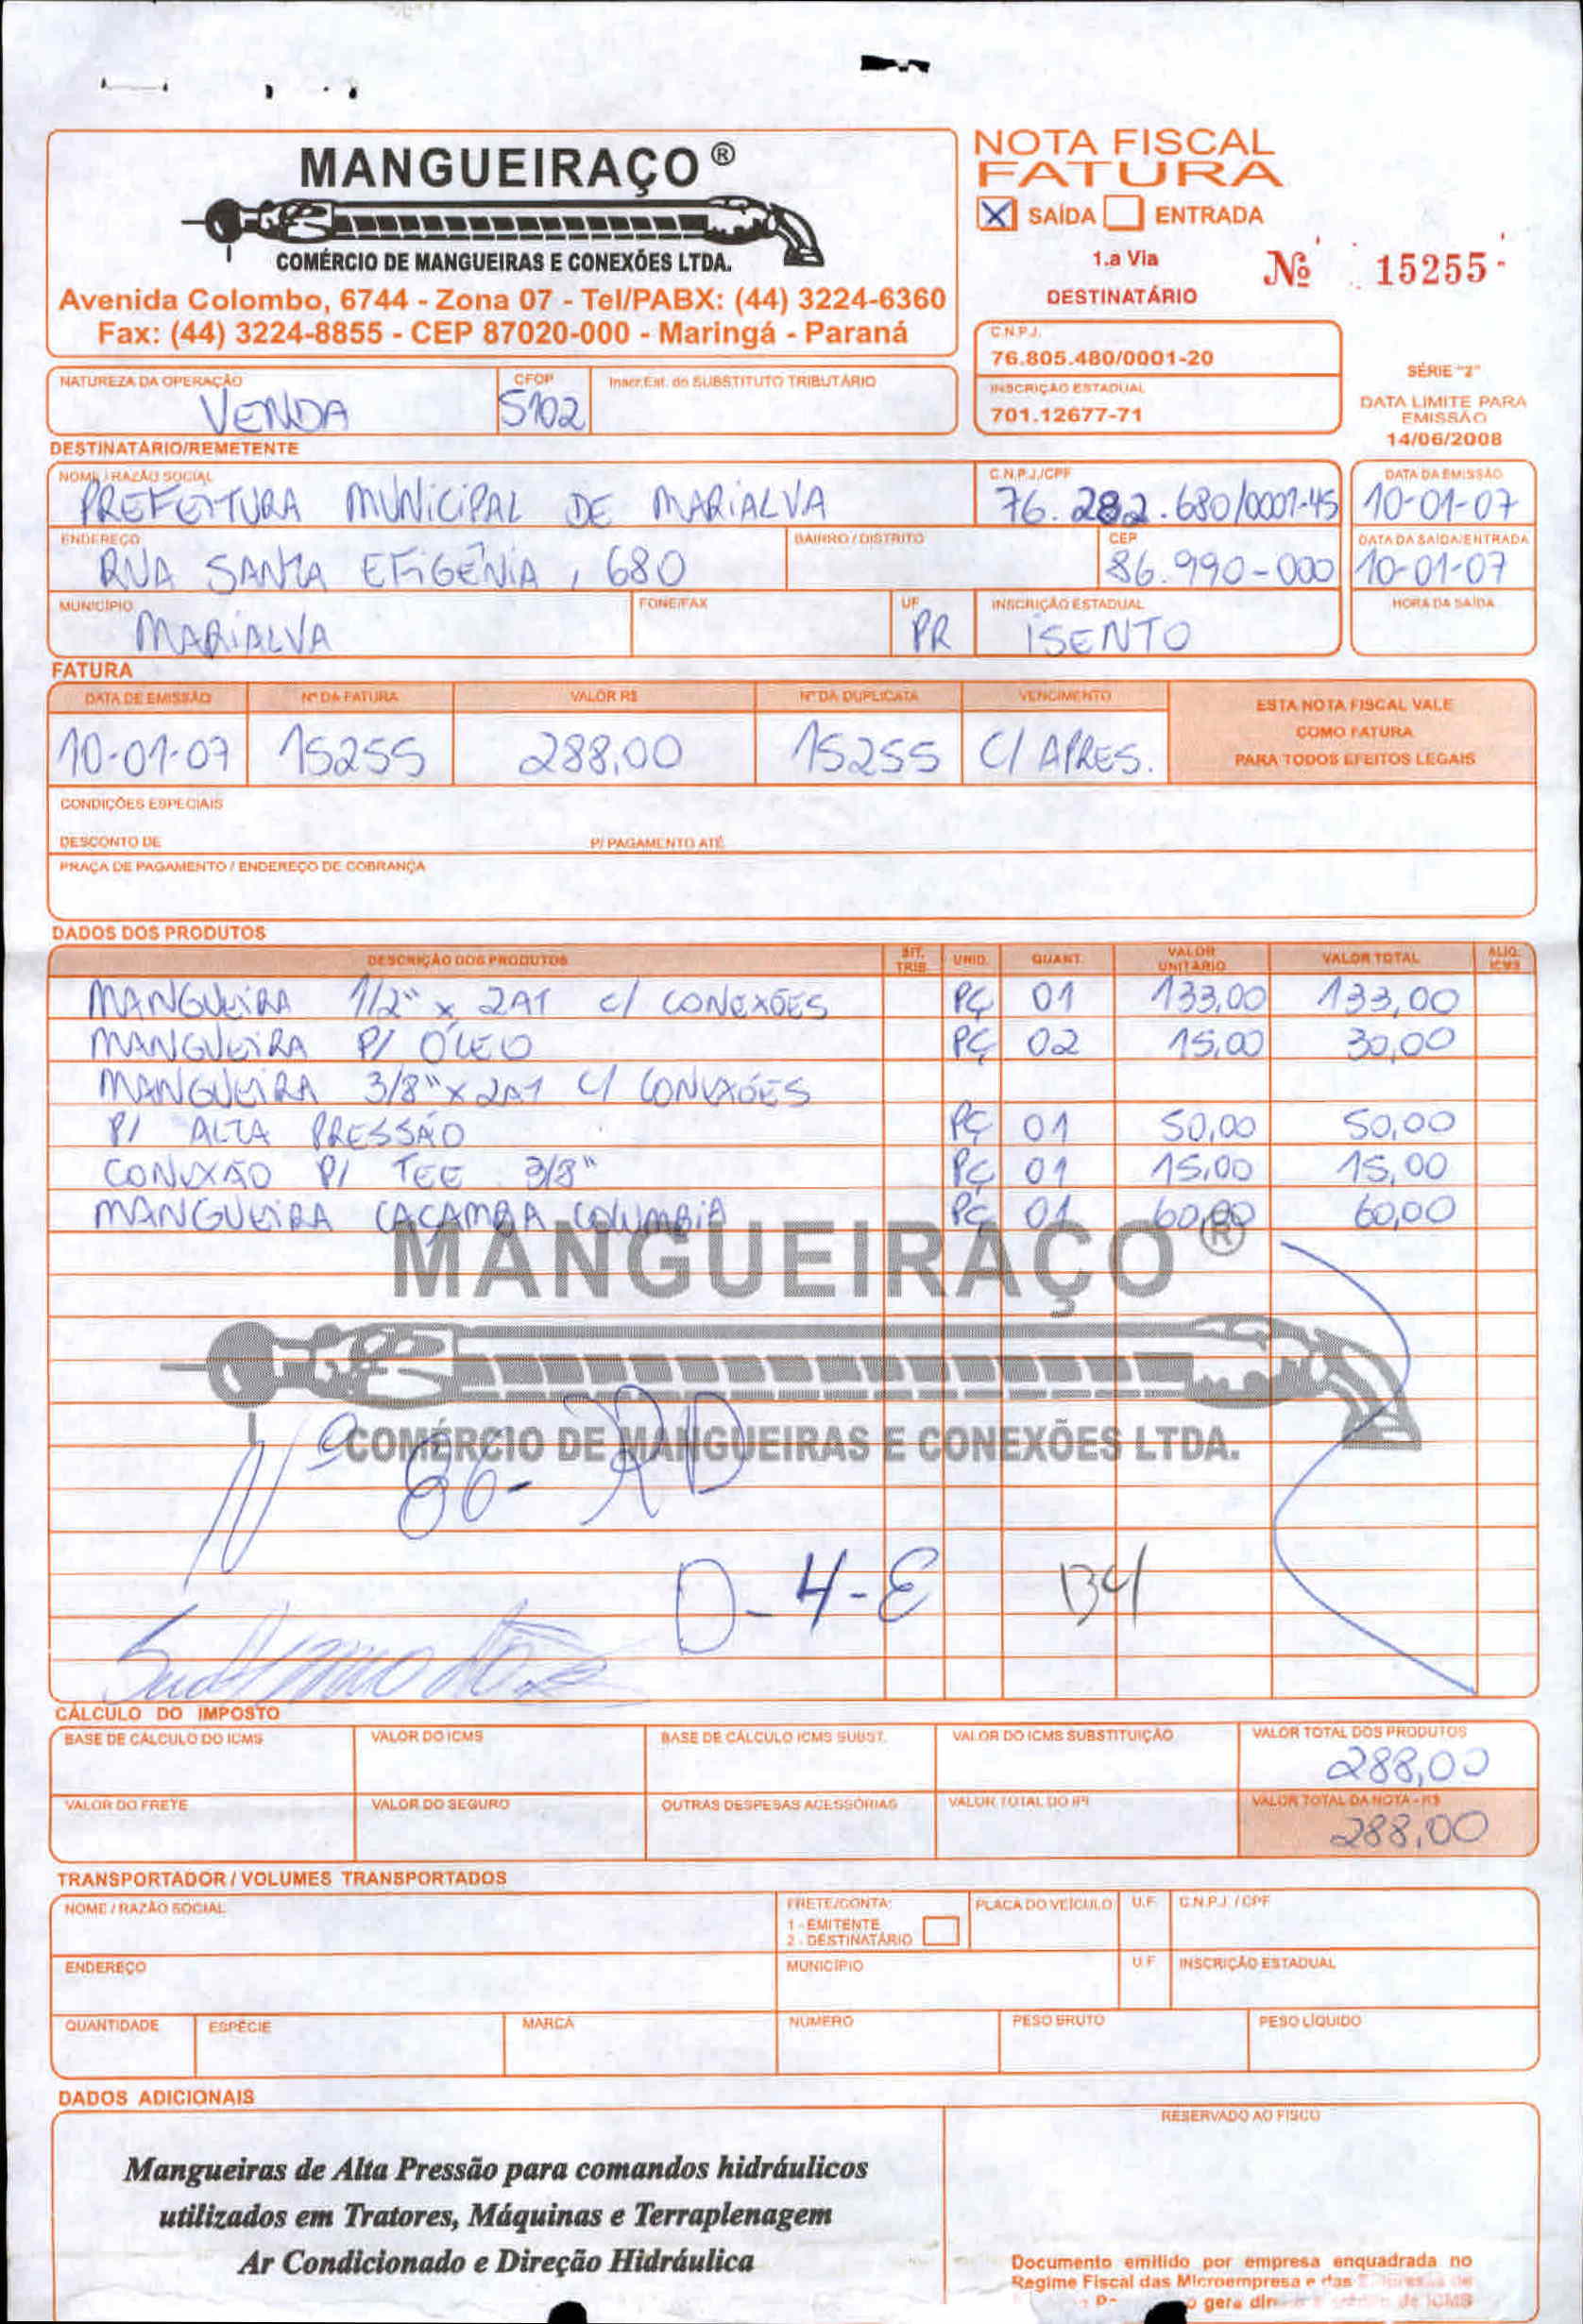 MANGUEIRAÇO®
COMÉRCIO DE MANGUEIRAS E CONEXÕES LTDA.
Avenida Colombo, 6744 - Zona 07 - Tel/PABX: (44) 3224-6360
Fax: (44) 3224-8855 - CEP 87020-000 - Maringá - Paraná
NOTA FISCAL
FATURA
X SAÍDA ENTRADA
1.a Via
DESTINATÁRIO
Nº 15255
C.N.P.J.
76.805.480/0001-20
INSCRIÇÃO ESTADUAL
701.12677-71
SÉRIE "2"
DATA LIMITE PARA
EMISSÃO
14/06/2008
NATUREZA DA OPERAÇÃO CFOP Inscr.Est. do SUBSTITUTO TRIBUTÁRIO
VENDA 5102
DESTINATÁRIO/REMETENTE
NOME / RAZÃO SOCIAL C.N.P.J./CPF DATA DA EMISSÃO
PREFEITURA MUNICIPAL DE MARIALVA 76.282.680/0001-45 10-01-07
ENDEREÇO BAIRRO / DISTRITO CEP DATA DA SAÍDA/ENTRADA
RUA SANTA EFIGÊNIA, 680 86.990-000 10-01-07
MUNICÍPIO FONE/FAX UF INSCRIÇÃO ESTADUAL HORA DA SAÍDA
MARIALVA PR ISENTO
FATURA
DATA DE EMISSÃO Nº DA FATURA VALOR R$ Nº DA DUPLICATA VENCIMENTO
10-01-07 15255 288,00 15255 C/ APRES.
ESTA NOTA FISCAL VALE
COMO FATURA
PARA TODOS EFEITOS LEGAIS
CONDIÇÕES ESPECIAIS
DESCONTO DE P/ PAGAMENTO ATÉ
PRAÇA DE PAGAMENTO / ENDEREÇO DE COBRANÇA
DADOS DOS PRODUTOS
DESCRIÇÃO DOS PRODUTOS SIT. TRIB. UNID. QUANT. VALOR UNITÁRIO VALOR TOTAL ALIQ. ICMS
MANGUEIRA 1/2" x 2AT c/ CONEXÕES PÇ 01 133,00 133,00
MANGUEIRA P/ ÓLEO PÇ 02 15,00 30,00
MANGUEIRA 3/8" x 2AT c/ CONEXÕES
P/ ALTA PRESSÃO PÇ 01 50,00 50,00
CONEXÃO P/ TEE 3/8" PÇ 01 15,00 15,00
MANGUEIRA CAÇAMBA COLUMBIA PÇ 01 60,00 60,00
MANGUEIRAÇO®
COMÉRCIO DE MANGUEIRAS E CONEXÕES LTDA.
Nº 86- RD
D-4-E 134
CÁLCULO DO IMPOSTO
BASE DE CÁLCULO DO ICMS VALOR DO ICMS BASE DE CÁLCULO ICMS SUBST. VALOR DO ICMS SUBSTITUIÇÃO VALOR TOTAL DOS PRODUTOS
288,00
VALOR DO FRETE VALOR DO SEGURO OUTRAS DESPESAS ACESSÓRIAS VALOR TOTAL DO IPI VALOR TOTAL DA NOTA - R$
288,00
TRANSPORTADOR / VOLUMES TRANSPORTADOS
NOME / RAZÃO SOCIAL FRETE/CONTA: PLACA DO VEÍCULO U.F. C.N.P.J. / CPF
1 - EMITENTE
2 - DESTINATÁRIO
ENDEREÇO MUNICÍPIO U.F. INSCRIÇÃO ESTADUAL
QUANTIDADE ESPÉCIE MARCA NÚMERO PESO BRUTO PESO LÍQUIDO
DADOS ADICIONAIS
RESERVADO AO FISCO
Mangueiras de Alta Pressão para comandos hidráulicos
utilizados em Tratores, Máquinas e Terraplenagem
Ar Condicionado e Direção Hidráulica
Documento emitido por empresa enquadrada no
Regime Fiscal das Microempresa e das
gera de ICMS